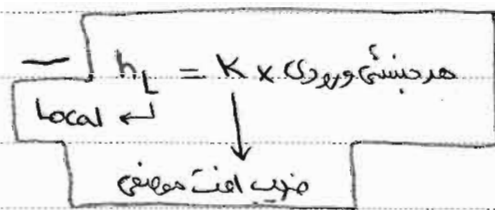 h_L = K × هد جنبشی ورودی
Local
ضریب افت موضعی